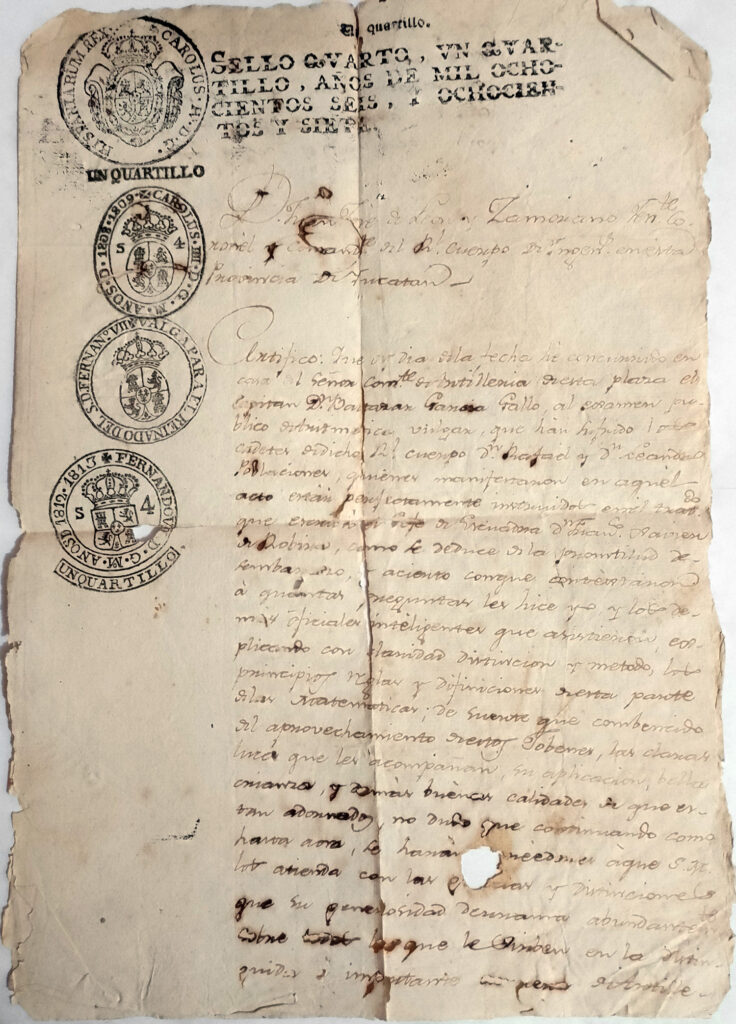 Un quartillo.
SELLO QVARTO, VN QVAR-
TILLO, AÑOS DE MIL OCHO-
CIENTOS SEIS, Y OCHOCIEN-
TOS Y SIETE.
HISPANIARUM REX CAROLUS IV D. G.
UN QUARTILLO
CAROLUS IIII D. G. M. AÑOS D. 1808. 1809
S 4
VALGA PARA EL REINADO DEL S. D. FERNANº VII
FERNANDO VII D. G. M. AÑOS D 1812 1813
S 4
UN QUARTILLO
Dn. de y Zamorano Tente Co-
ronel y Comandte del Rl. cuerpo de Yngens en esta
Provincia de Yucatan
Certifico: Que oy dia dela fecha he concurrido en
casa del Señor Comte de Artilleria desta plaza el
Capitan Dn. Baltazar Garcia Gallo, al examen pu-
blico de Aritmetica vulgar, que han sufrido los
Cadetes de dicho Rl. cuerpo Dn. Rafael y Dn. Leandro
Poblaciones, quienes manifestaron en aquel
acto están perfectamente instruidos en el tratado
que escrivió el Gefe de Escuadra Dn. Franco Xavier
de Robira, como se deduce de la prontitud de-
sembarazo, y acierto conque contextaron
à quantas preguntas les hice yo y los de-
mas oficiales inteligentes que asistieron, ex-
plicando con claridad distincion y metodo, los
principios reglas y difiniciones desta parte
delas Matematicas; de suerte que combencido
del aprovechamiento destos Jobenes, las claras
luces que les acompañan, su aplicacion, bella
crianza, y demás buenas calidades de que es-
tan adornados, no dudo que continuando como
hasta aora, se harán àque S. M.
los atienda con las gracias y distinciones
que su generosidad derrama abundantemte
sobre los que le sirben en la distin-
guido è importante cuerpo de Artille-